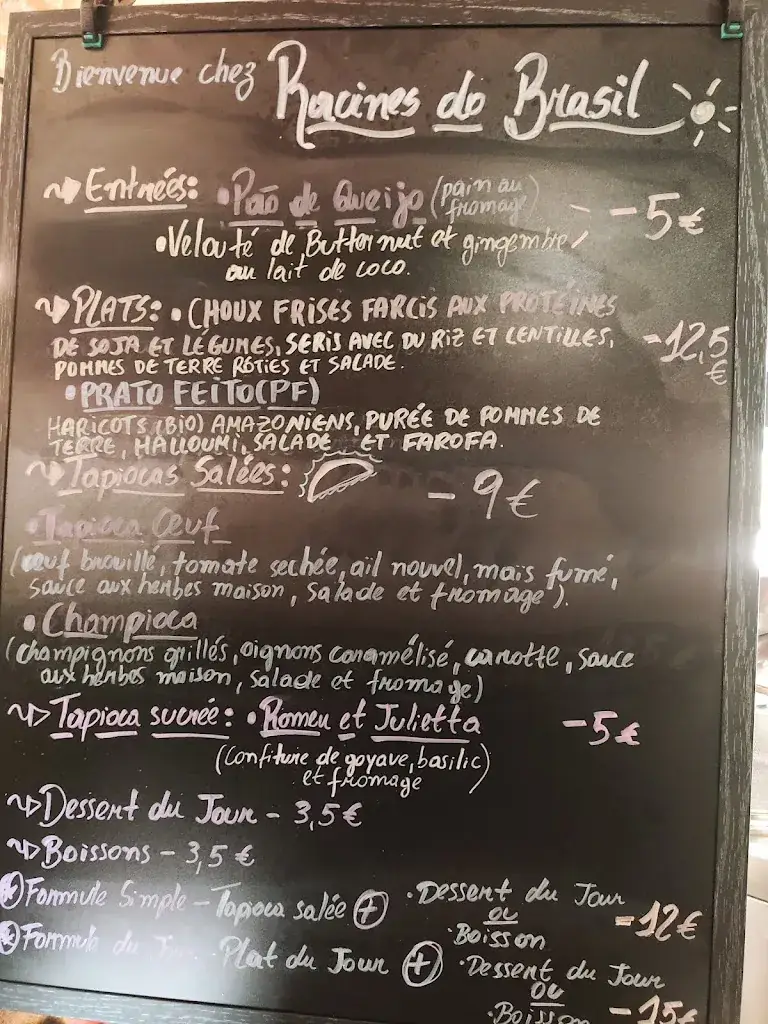 Bienvenue chez Racines do Brasil
Entrées: • Pão de Queijo (pain au fromage) - 5€
• Velouté de Butternut et gingembre
au lait de coco.
PLATS: • CHOUX FRISES FARCIS AUX PROTÉINES
DE SOJA ET LÉGUMES, SERIS AVEC DU RIZ ET LENTILLES, - 12,5 €
POMMES DE TERRE RÔTIES ET SALADE.
• PRATO FEITO (PF)
HARICOTS (BIO) AMAZONIENS, PURÉE DE POMMES DE
TERRE, HALLOUMI, SALADE ET FAROFA.
Tapiocas Salées: - 9€
• Tapioca Œuf
(œuf brouillé, tomate sechée, ail nouvel, maïs fumé,
sauce aux herbes maison, salade et fromage).
• Champioca
(champignons grillés, oignons caramélisé, carotte, sauce
aux herbes maison, salade et fromage)
Tapioca sucrée: • Romeu et Julietta - 5€
(confiture de goyave, basilic
et fromage
Dessert du Jour - 3,5€
Boissons - 3,5€
Formule Simple - Tapioca salée + • Dessert du Jour
ou - 12€
• Boisson
Formule du • Plat du Jour + • Dessert du Jour
ou
• Boisson - 15€